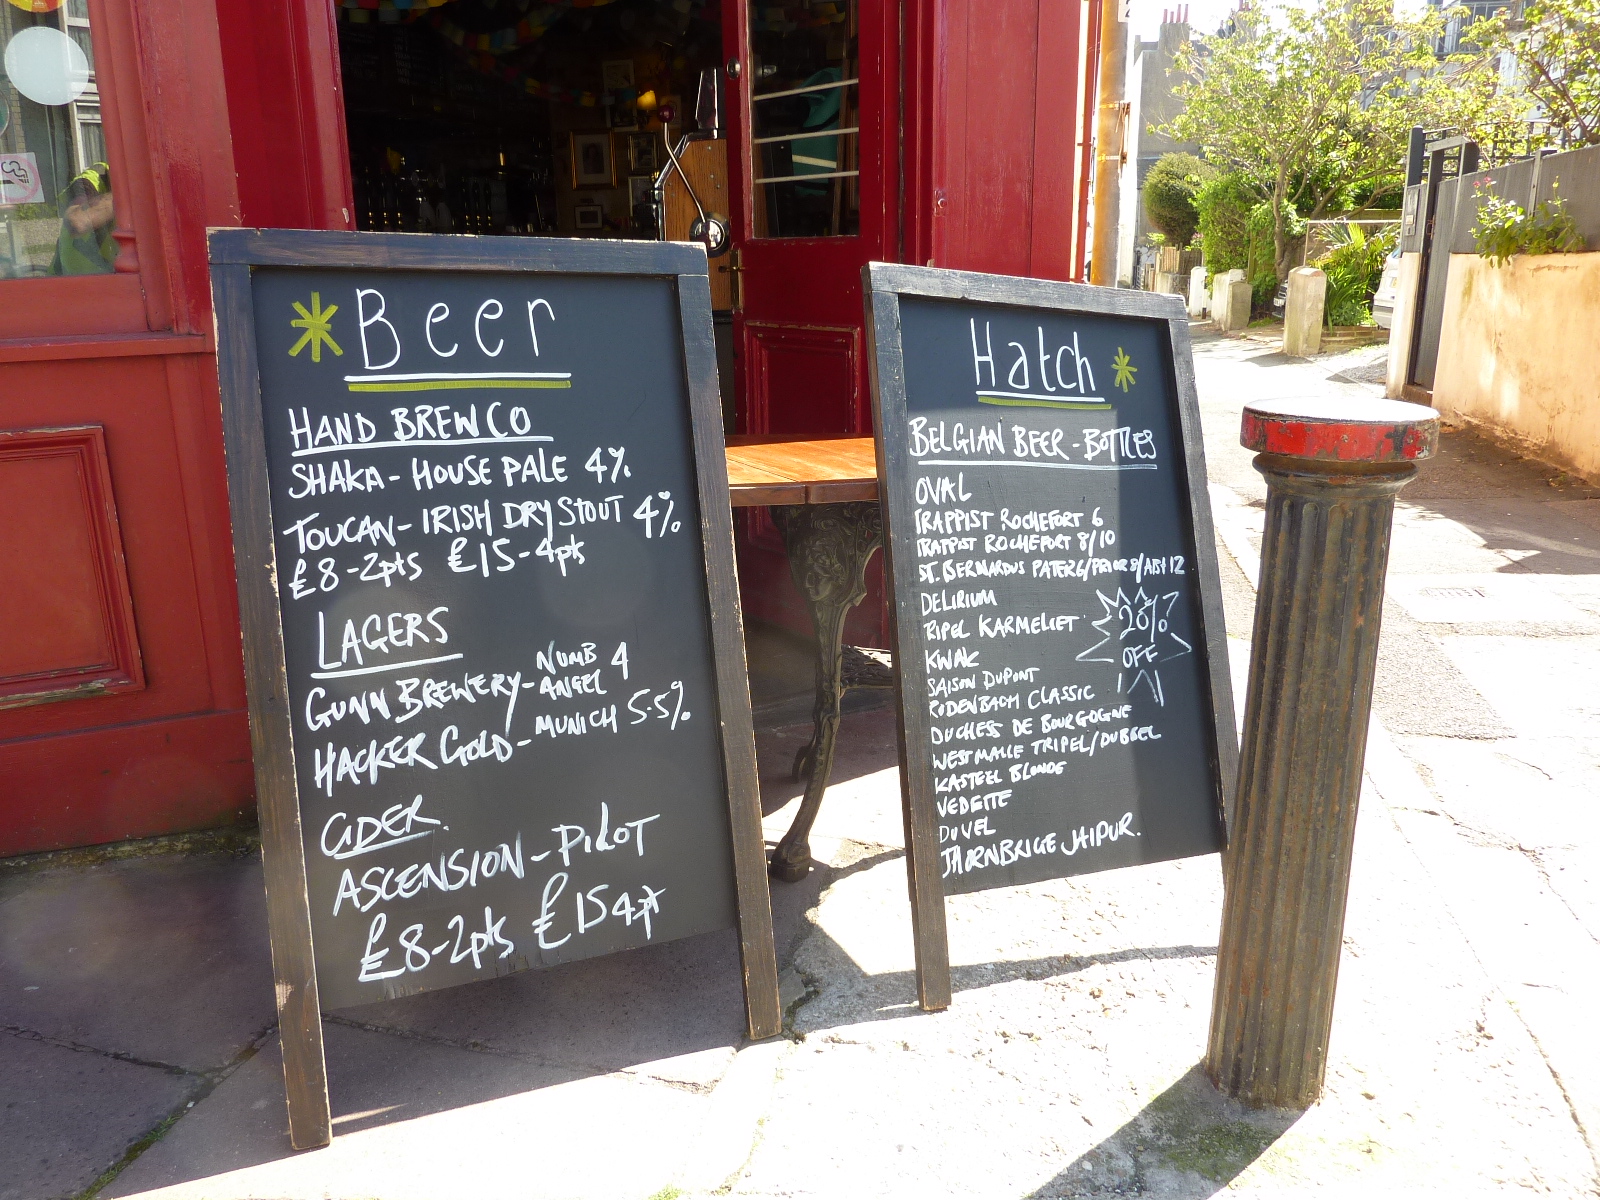 Beer
HAND BREW CO
SHAKA - HOUSE PALE 4%
TOUCAN - IRISH DRY STOUT 4%
£8-2pts £15-4pts
LAGERS
GUNN BREWERY - NUMB ANGEL 4
HACKER GOLD - MUNICH 5.5%
CIDER
ASCENSION - PILOT
£8-2pts £15 4pt
Hatch
BELGIAN BEER - BOTTLES
OVAL
TRAPPIST ROCHEFORT 6
TRAPPIST ROCHEFORT 8/10
ST. BERNARDUS PATER 6/PRIOR 8/ABT 12
DELIRIUM
TRIPEL KARMELIET
KWAK
20%
OFF
SAISON DUPONT
RODENBACH CLASSIC
DUCHESS DE BOURGOGNE
WESTMALLE TRIPEL/DUBBEL
KASTEEL BLONDE
VEDETTE
DUVEL
THORNBRIGE JAIPUR.